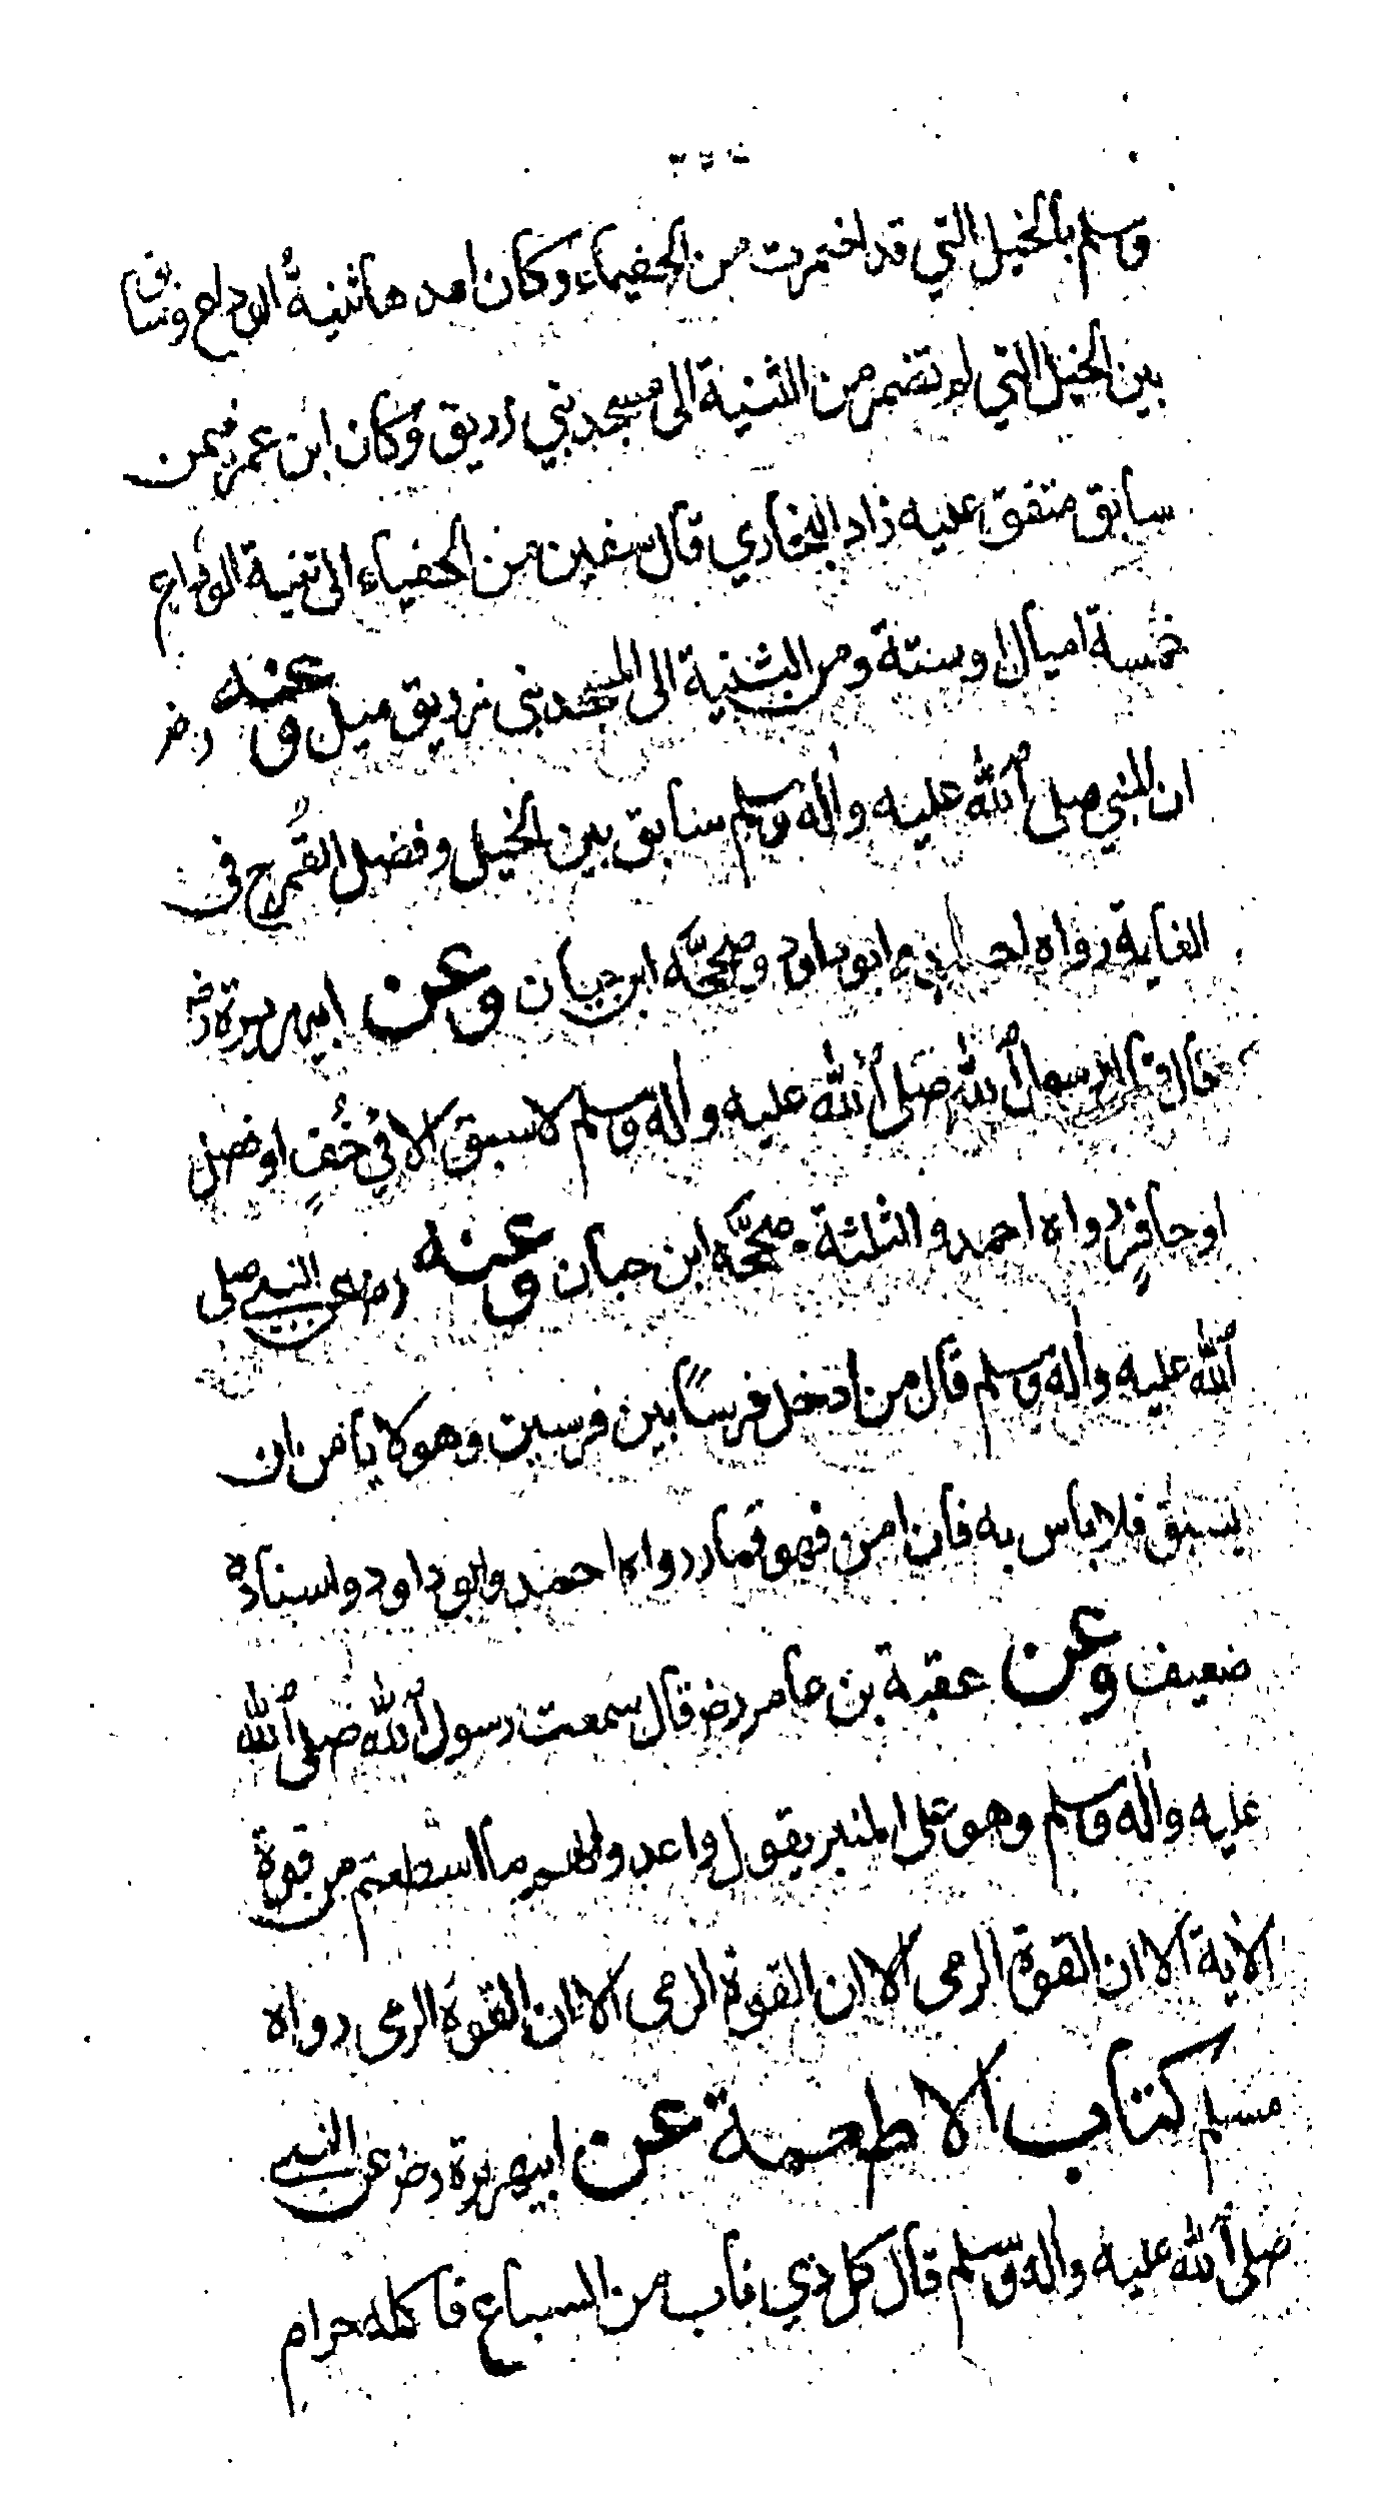 وسلم بالخيل التي قد اضمرت من الحفياء وكان امدها ثنية الوداع وسابق
بين الخيل التي لم تضمر من الثنية الى مسجد بني زريق وكان ابن عمر فيمن
سابق متفق عليه زاد البخاري قال سفين من الحفياء الى ثنية الوداع
خمسة اميال او ستة ومن الثنية الى المسجد بنى زريق ميل وعنه رض
ان النبي صلى الله عليه واله وسلم سابق بين الخيل وفضل القرح فى
الغاية رواه احمد وابو داود وصححه ابن حبان وعن ابيهريرة رض
قال قال رسول الله صلى الله عليه واله وسلم لا سبق الا في خف او نصل
او حافر رواه احمد والثلثة وصححه ابن حبان وعنه رض عن النبي صلى
الله عليه واله وسلم قال من ادخل فرسًا بين فرسين وهو لا يامن ان
يسبق فلا باس به فان امن فهو قمار رواه احمد وابو داود واسناده
ضعيف وعن عقبة بن عامر رض قال سمعت رسول الله صلى الله
عليه واله وسلم وهو على المنبر يقول واعدوا لهم ما استطعتم من قوة
الاية الا ان القوة الرمى الا ان القوة الرمى الا ان القوة الرمى رواه
مسلم كتاب الاطعمة عن ابيهريرة رض عن النبي
صلى الله عليه واله وسلم قال كل ذي ناب من السباع فاكله حرام